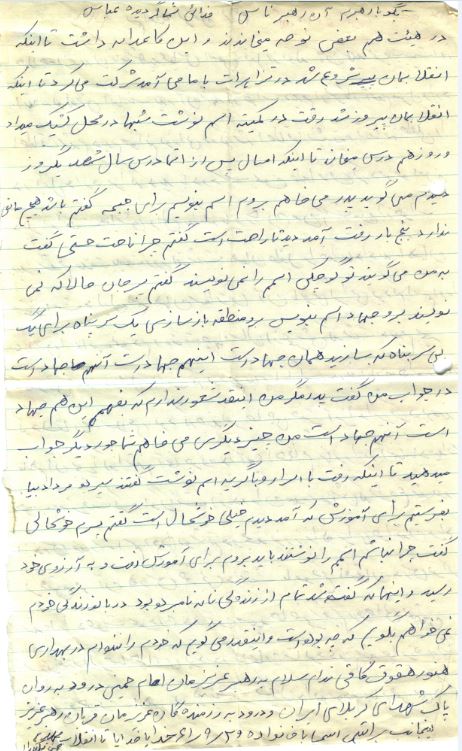 بگو با رهبرم آن رهبر ناس فدائی شما گردیده عباس
در هیئت هم بعضی نوحه میخواندند و این کا عمدانه داشت تا اینکه
انقلابمان شروع شد در تظاهرات با ما می آمد شرکت می کرد تا اینکه
انقلابمان پیروز شد رفت در کمیته اسم نوشت شبها در محل کشیک میداد
و روز هم درس میخواند تا اینکه امسال پس از اتمام درس سال شصت یک روز
دیدم می گوید پدر می خواهم بروم اسم بنویسم برای جبهه گفتم باشد هیچ مانعی
ندارد پنج بار رفت آمد دید ناراحت است گفتم چرا ناراحت هستی گفت
به من می گویند تو کوچکی اسمم را نمی نویسند گفتم پسر جان حالا که نمی
نویسند برو جهاد اسم بنویس برو منطقه بازسازی یک سر پناه برای یک
بی سر پناه که بسازید همان جهاد است اینهم جهاد است آنهم جهاد است
در جواب من گفت پدر مگر من اینقدر شعور ندارم که نفهمم این هم جهاد
است آنهم جهاد است من چیز دیگری می خواهم شما جور دیگر جواب
میدهید تا اینکه رفت با اصرار و با گریه اسم نوشت گفتند سی دو مرداد بیا
بفرستیم برای آموزش که آمد دیدم خیلی خوشحال است گفتم پسرم خوشحالی
گفت چرا نباشم اسمم را نوشتند باید بروم برای آموزش رفت و به آرزوی خود
رسید و اینها که گفته شد تمام از زندگی نامه نامبرده بود در باره زندگی خودم
نمی خواهم بگویم که چه بوده است و اینقدر می گویم که خودم را میتوانم در بهداری
هنوز حقوق کافی ندارم سلام به رهبر عزیزمان امام خمینی درود به روان
پاک شهدای کربلای ایران و درود به رزمندگان عزیزمان قربان رهبر عزیز